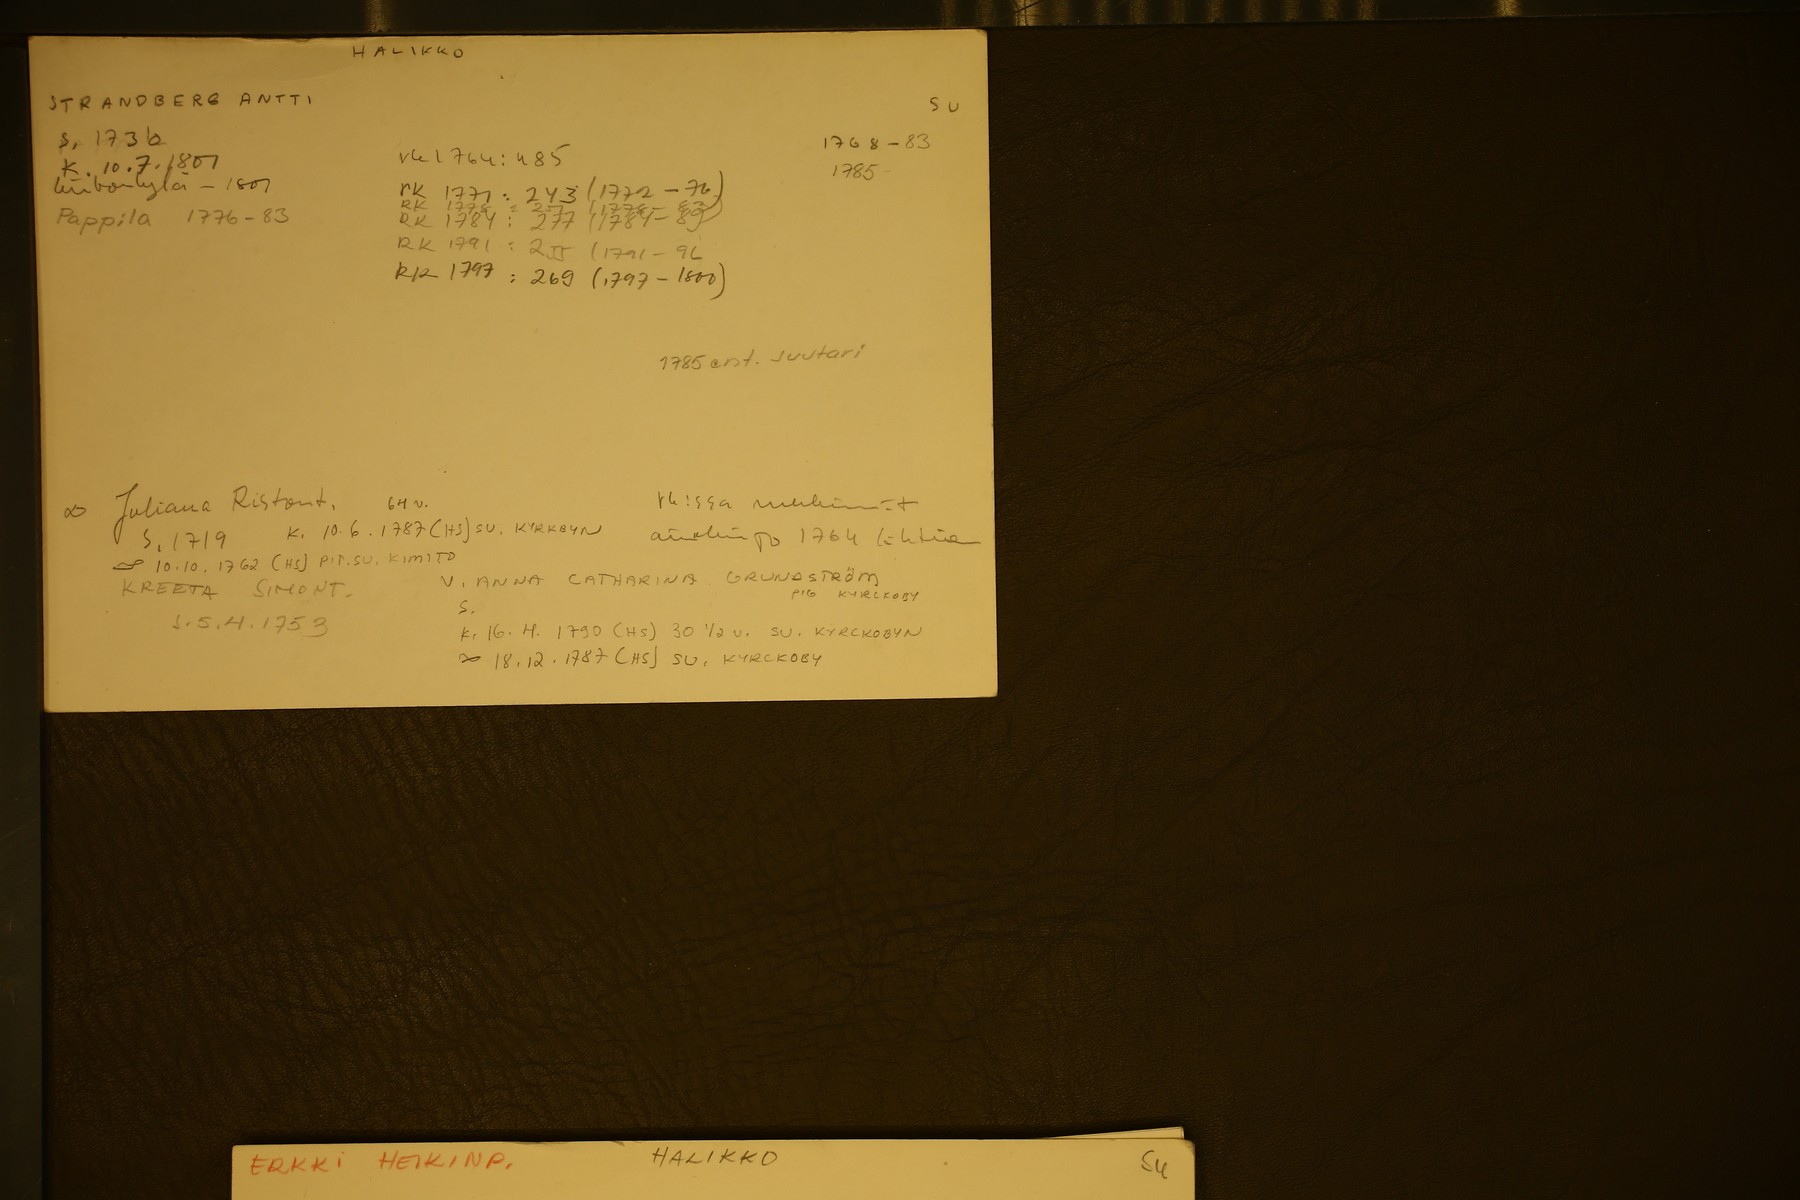 HALIKKO
STRANDBERG ANTTI SU
S. 1736 1768-83
K. 10.7.1801 rk 1764: 485 1785-
- 1801 RK 1771: 243 (1772-76)
RK 1778: (1778-83)
Pappila 1776-83 RK 1784: 277 (1784-89)
RK 1791: 255 (1791-96
RK 1797: 269 (1797-1800)
1785 ent. suutari
∞ Juliana Ristont. 64 v. rk:ssa merkinnät
S. 1719 K. 10.6.1787 (HS) SU. KYRKBYN ainakin jo 1764 lähtien
∞ 10.10.1762 (HS) PIT.SU. KIMITO
KREETA SIMONT. V. ANNA CATHARINA GRUNDSTRÖM
PIG KYRCKOBY
S. 5.4.1753 S.
K. 16.4. 1790 (HS) 30 1/2 v. SU. KYRCKOBYN
∞ 18.12.1787 (HS) SU. KYRCKOBY
ERKKI HEIKINP. HALIKKO SU